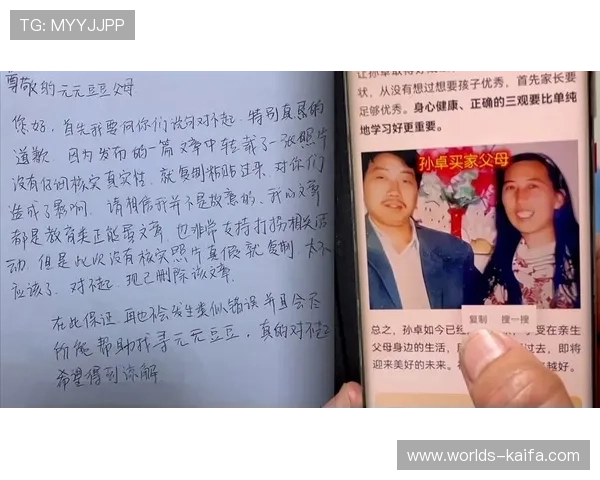 TG: MYYJJPP
尊敬的元元豆豆父母
您好，首先我要向你们说句对不起，特别真恳的
道歉，因为发布的一篇文章中转载了一张照片
没有仔细核实真实性，就复制粘贴过来，对你们
造成了影响，请相信我并不是故意的，我的文章
都是教育类正能量文章，也非常支持打拐相关活
动，但是此次没有核实照片真假就复制，太不
应该了，对不起，现已删除该文章，
在此保证，再也不会发生类似错误并且会尽
所能帮助找寻元元豆豆，真的对不起
希望得到谅解
状，从没有想过想要孩子优秀，首先家长要
足够优秀。身心健康、正确的三观要比单纯
地学习好更重要。
孙卓买家父母
复制 搜一搜
总之，孙卓如今已经 受在亲生
父母身边的生活， 过去，即将
迎来美好的未来。 越好。
www.worlds-kaifa.com